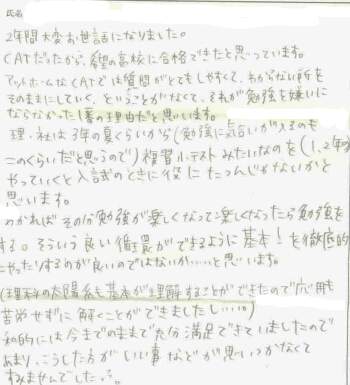 氏名
2年間大変お世話になりました。
CATだったから、希望の高校に合格できたと思っています。
アットホームなCATでは質問がとてもしやすくて、わからない所を
そのままにしていく、ということがなくて、それが勉強を嫌いに
ならなかった1番の理由だと思います。
理・社は3年の夏くらいから(勉強に気合いが入るのも
このくらいだと思うので)復習小テストみたいなのを(1,2年の)
やっていくと入試のときに役にたつんじゃないかと
思います。
わかればその分勉強が楽しくなって楽しくなったら勉強を
する。そういう良い循環ができるように基本!を徹底的
にやったりするのが良いのではないか……と思います。
(理科の太陽系も基本が理解することができたので応用も
苦労せずに解くことができましたし…)
私的には今までのままで充分満足できていましたので
あまり、こうした方がいい事などが思いつかなくて
すみませんでした…。